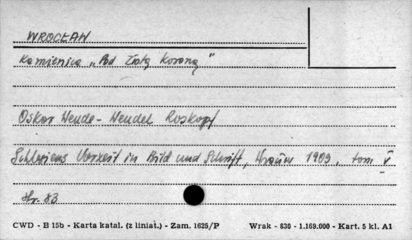 WROCŁAW
Kamienica „Pod Złotą Koroną"
Oskar Wende - Wendel Roskopf
Schlesiens Vorzeit in Bild und Schrift, 1909, tom V
str. 83
CWD - B 15b - Karta katal. (z liniat.) - Zam. 1625/P Wrak - 830 - 1.169.000 - Kart. 5 kl. A1